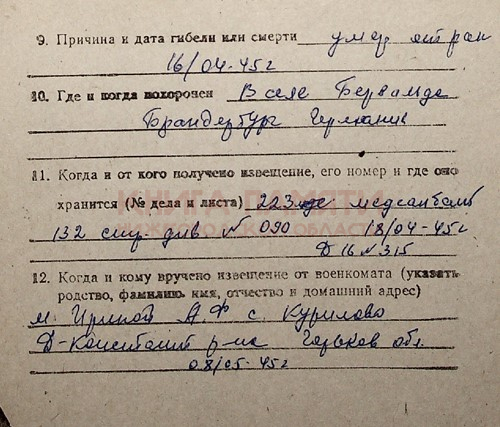 9. Причина и дата гибели или смерти умер от ран
16/04-45г
10. Где и когда похоронен В селе Бервалде
Брандербург Германия
11. Когда и от кого получено извещение, его номер и где оно
хранится (№ дела и листа) 223 медсанбат
КНИГА ПАМЯТИ
132 стр. див N 090 18/04-45г
Д 16 N 315
12. Когда и кому вручено извещение от военкомата (указать
родство, фамилию, имя, отчество и домашний адрес)
м. А.Ф с. Курилово
Д-Констант р-на Горьков обл.
08/05-45г